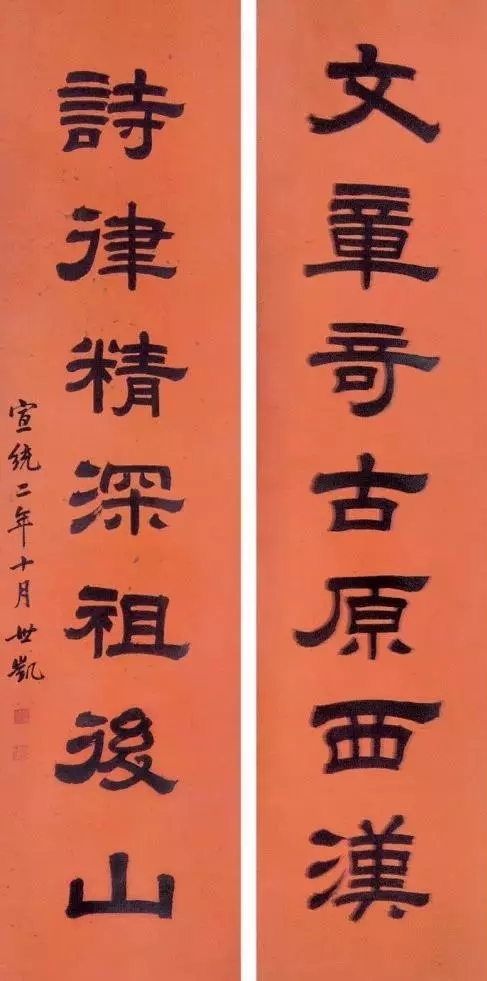 文章奇古原西漢
詩律精深祖後山
宣統二年十月世凱